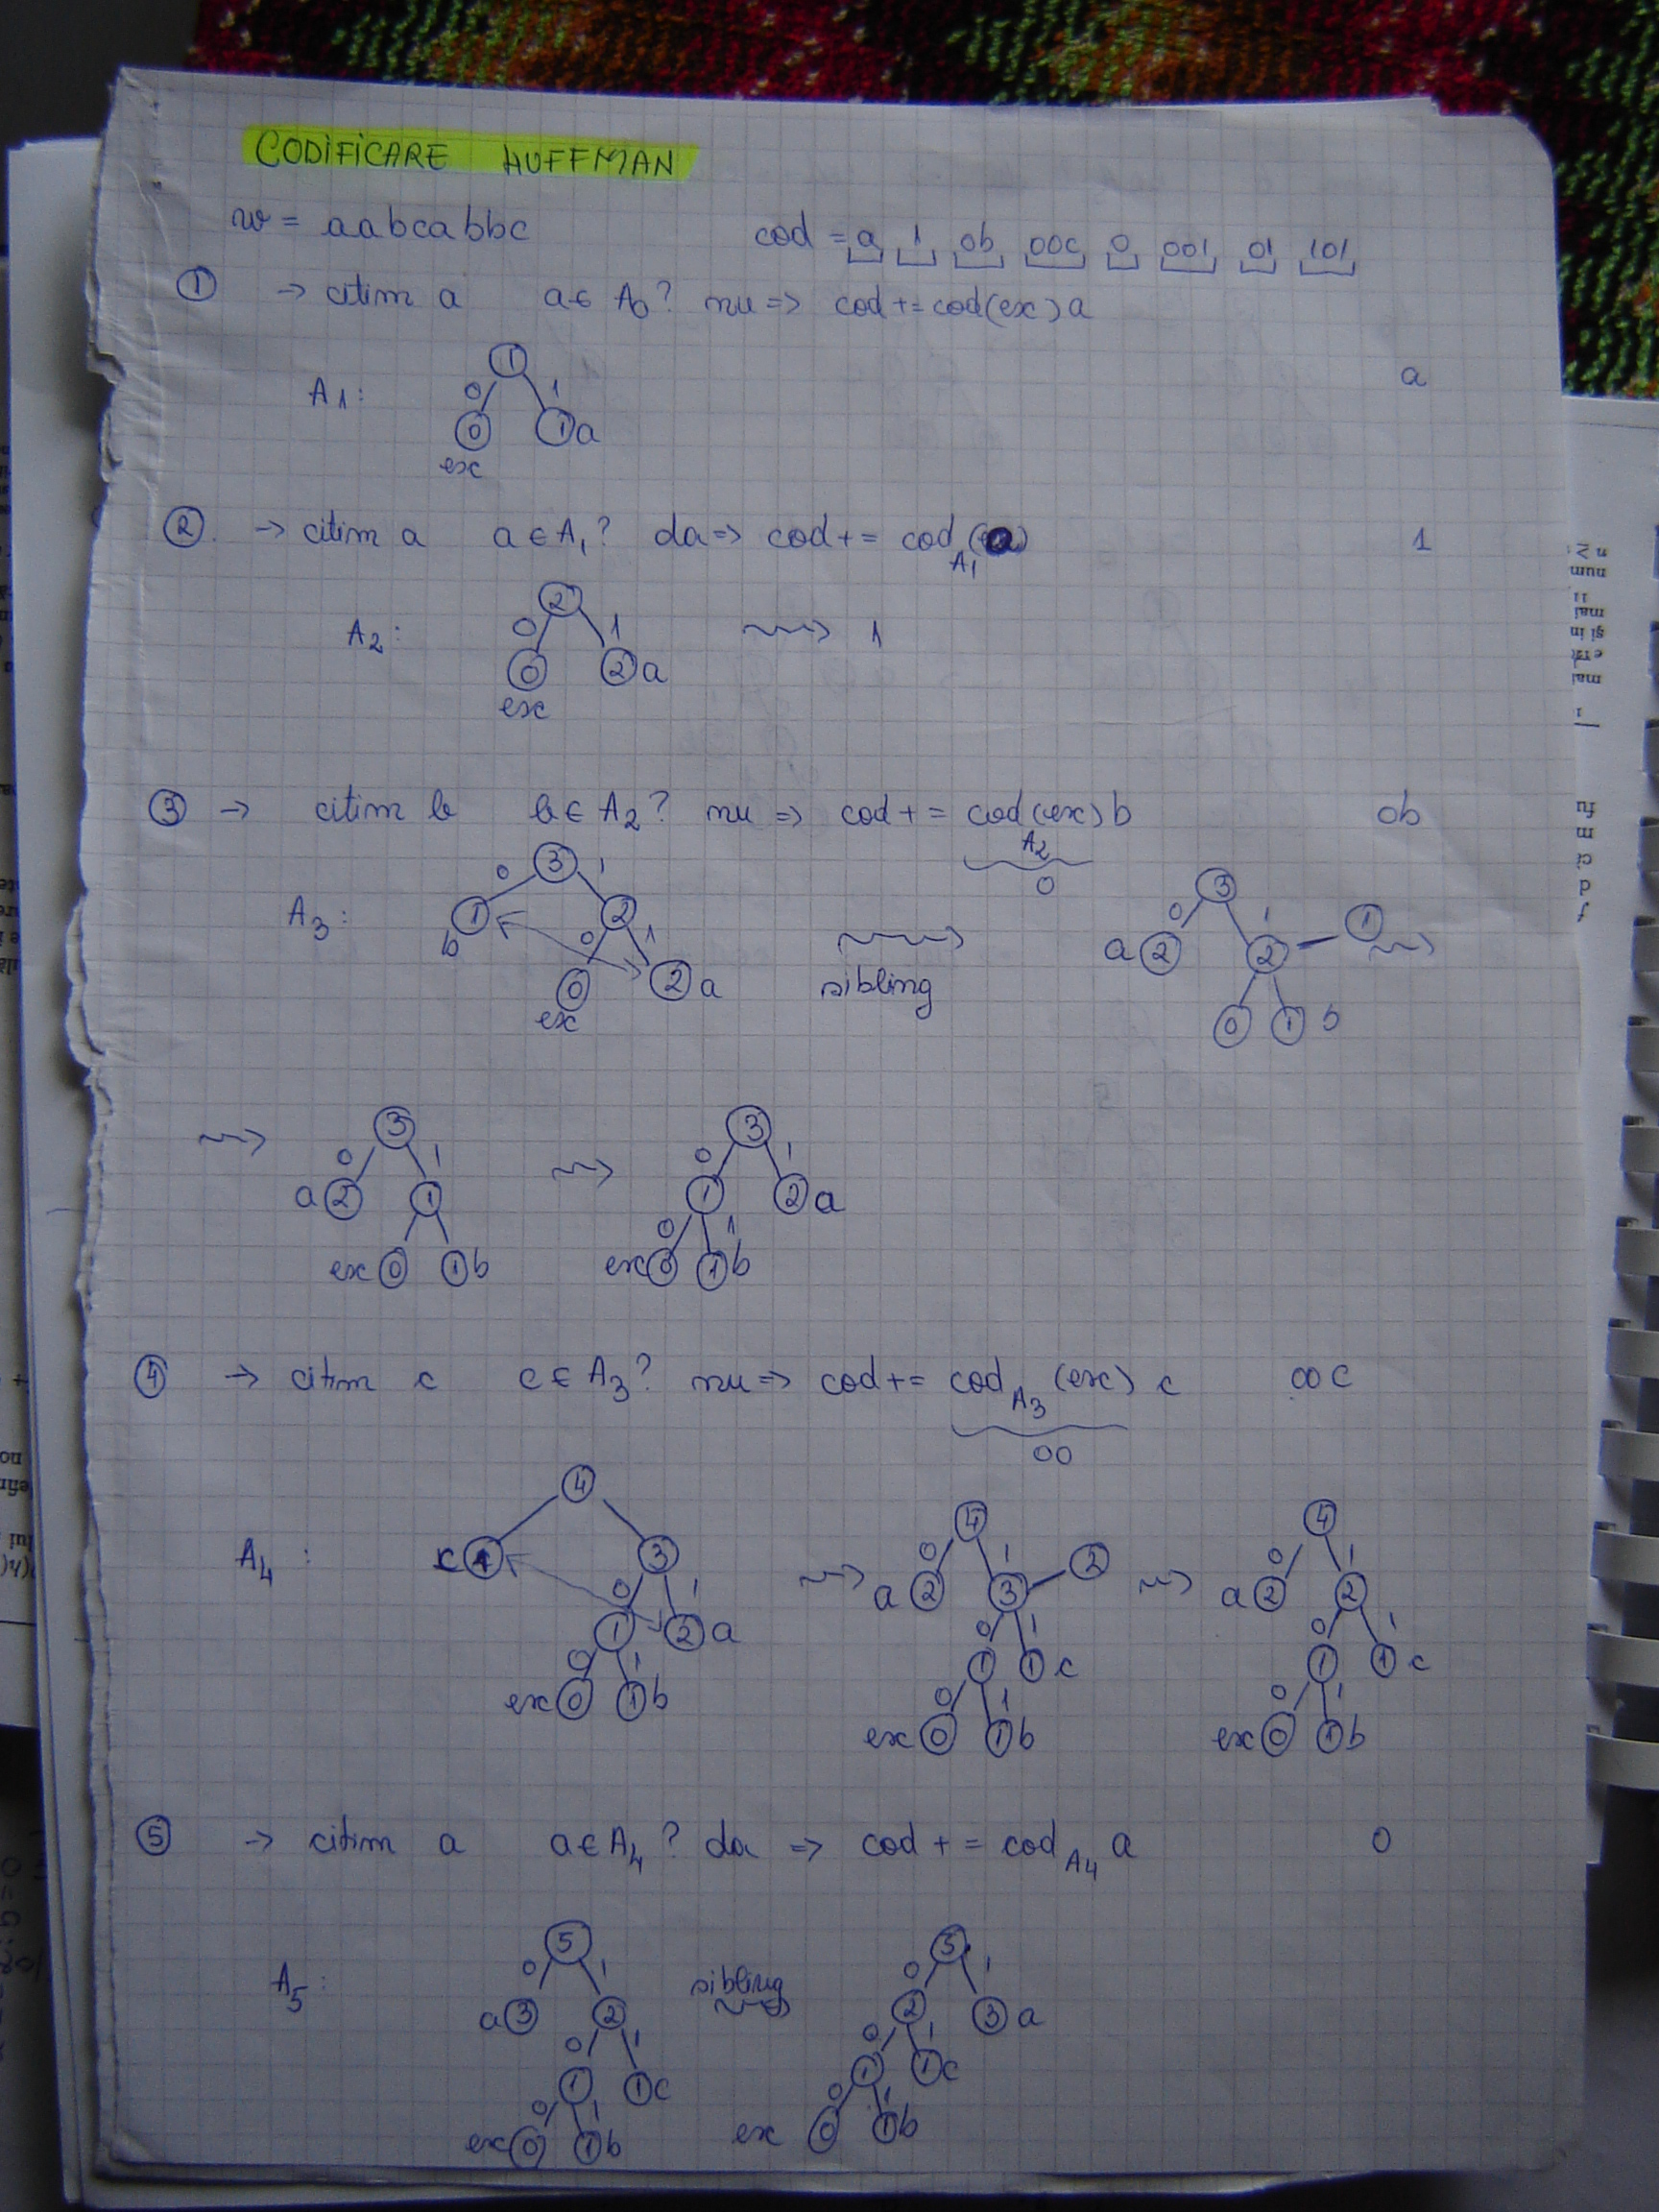 CODIFICARE HUFFMAN
w = aabcabbc cod = a 1 0b 00c 0 001 01 101
① → citim a a ∈ A0? nu => cod += cod(ex) a
A1: 1 0 1 0 1 a a
ex
② → citim a a ∈ A1? da => cod += cod A1 (a) 1
A2: 2 0 1 0 2 a ⇝ 1
ex
③ → citim b b ∈ A2? nu => cod += cod(ex) b 0b
A2
0
A3: 3 0 1 1 2 0 1 0 2 a b ex ⇝ sibling 3 0 1 a 2 2 1 0 1 b ⇝
⇝ 3 0 1 a 2 1 ex 0 1 b ⇝ 3 0 1 1 2 a 0 1 ex 0 1 b
④ → citim c c ∈ A3? nu => cod += cod A3 (ex) c 00c
00
A4: 4 c 1 3 0 1 1 2 a 0 1 ex 0 1 b ⇝ 4 0 1 a 2 3 2 0 1 1 1 c 0 1 ex 0 1 b ⇝ 4 0 1 a 2 2 0 1 1 1 c 0 1 ex 0 1 b
⑤ → citim a a ∈ A4? da => cod += cod A4 a 0
A5: 5 0 1 a 3 2 0 1 1 1 c 0 1 ex 0 1 b sibling ⇝ 5 0 1 2 3 a 0 1 1 1 c 0 1 ex 0 1 b